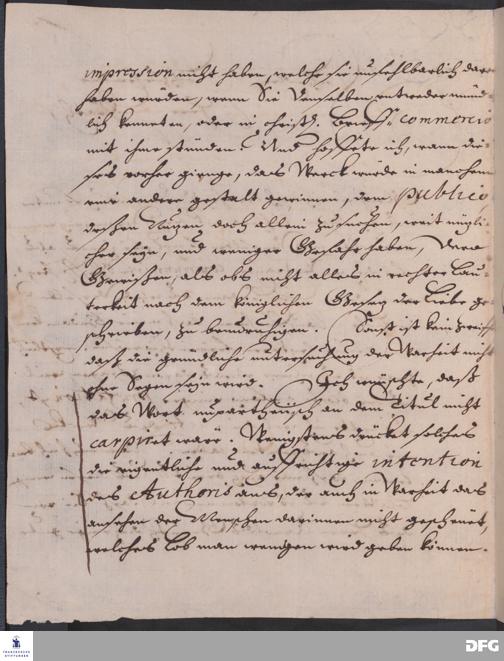 impression nicht haben, welche sie unfehlbarlich dar
haben würden, wenn Sie denselben entweder münd
lich kenneten, oder in christl. Brieff-commercio
mit ihme stünden. Und hoffete ich, wann die
ses vorher gienge, das Werck würde in manchem
eine andere gestalt gewinnen, dem publico
deßen Nutzen doch allein zu suchen, weit nützli
cher seyn, und weniger Gefahr haben, Dero
Gewißen, als obs nicht alles in rechter Lau
terkeit nach dem königlichen Gesetz der Liebe ge
schrieben, zu beunruhigen. Sonst ist kein zweif
daß die gründliche untersuchung der Warheit nicht
ohne Segen seyn wird. Ich wünschte, daß
das Wort unpartheyisch an dem Titul nicht
carpiret wäre. Wenigstens drücket solches
die eigentliche und auffrichtige intention
des Authoris aus, der auch in Warheit das
ansehen der Menschen darinnen nicht gescheuet,
welches Lob man wenigen wird geben können.
FRANCKESCHE
STIFTUNGEN
DFG